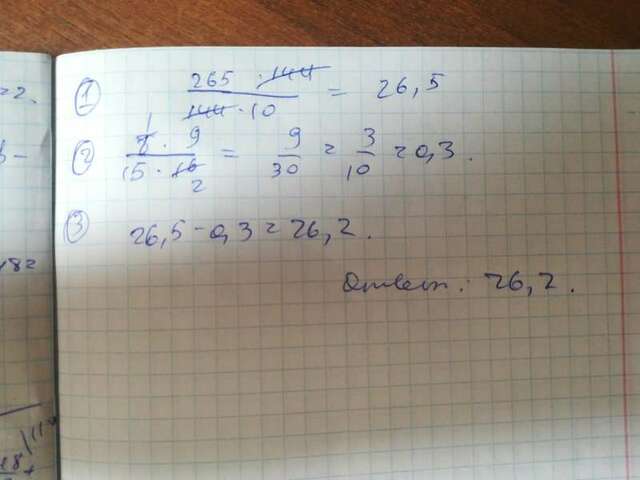 =2.
① 265 · 144 / 144 · 10 = 26,5
② 8 · 9 / 15 · 16 = 9/30 = 3/10 = 0,3.
1
2
③ 26,5 - 0,3 = 26,2.
Ответ: 26,2.